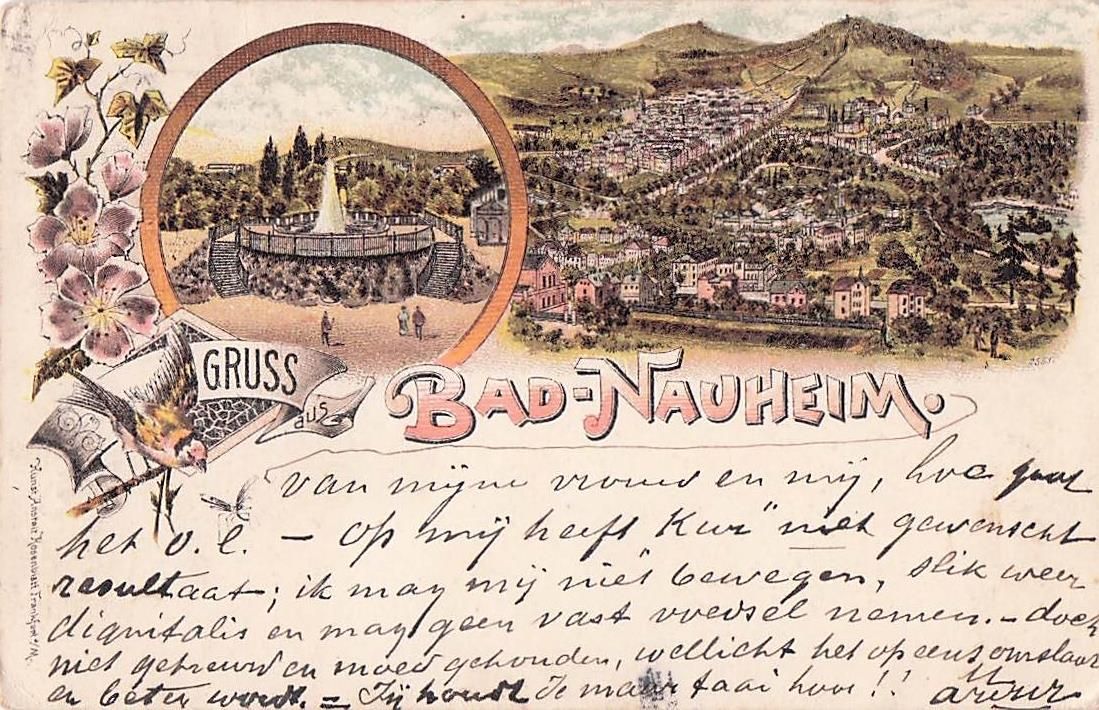 GRUSS
aus
BAD-NAUHEIM.
2561.
Kunst-Anstalt Rosenblatt Frankfurt a/M.
van mijne vrouw en mij, hoe gaat
het v. l. — Op mij heeft Kur" niet gewenscht
resultaat; ik mag mij niet bewegen, slik weer
dignitalis en mag geen vast voedsel nemen. — doch
niet getreurd en moed gehouden, wellicht het opeens omslaat
en beter wordt. — Jij houdt Je maar taai hoor!!